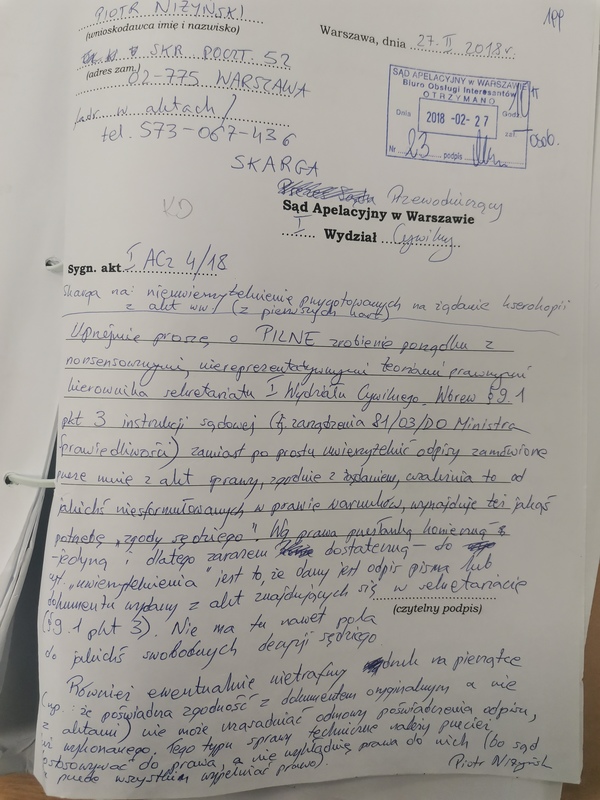 199
PIOTR NIŻYŃSKI
(wnioskodawca imię i nazwisko)
Warszawa, dnia 27.II 2018 r.
SKR. POCZT. 52
(adres zam.)
02-775 WARSZAWA
w aktach/
tel. 573-067-436
SĄD APELACYJNY w WARSZAWIE
Biuro Obsługi Interesantów
OTRZYMANO
Dnia 2018 -02- 27 Godz.
zał.
osob.
Nr 23 podpis
SKARGA
Przewodniczący
KD
Sąd Apelacyjny w Warszawie
I Wydział Cywilny
Sygn. akt I ACz 4/18
Skarga na: nieuwierzytelnienie przygotowanych na żądanie kserokopii
z akt ww. (z pierwszych kart)
Uprzejmie proszę o PILNE zrobienie porządku z
nonsensownymi, niereprezentatywnymi teoriami prawnymi
kierownika sekretariatu I Wydziału Cywilnego. Wbrew § 9.1
pkt 3 instrukcji sądowej (tj. zarządzenia 81/03/DO Ministra
Sprawiedliwości) zamiast po prostu uwierzytelnić odpisy zamówione
przeze mnie z akt sprawy, zgodnie z żądaniem, uzależnia to od
jakichś niesformułowanych w prawie warunków, wynajduje też jakąś
potrzebę "zgody sędziego". Wg prawa przesłanką konieczną
- jedyną i dlatego zarazem dostateczną - do
"uwierzytelnienia" jest to, że dany jest odpis pisma lub
dokumentu wydany z akt znajdujących się w sekretariacie
(czytelny podpis)
(§ 9.1 pkt 3). Nie ma tu nawet pola
do jakichś swobodnych decyzji sędziego.
Również ewentualnie nietrafny druk na pieczątce
(np.: że poświadcza zgodność z dokumentem oryginalnym a nie
z aktami) nie może uzasadniać odmowy poświadczenia odpisu,
już wykonanego. Tego typu sprawy techniczne należy przecież
dostosowywać do prawa, a nie wykładnię prawa do nich (bo sąd
przede wszystkim wypełniać prawo).
Piotr Niżyński